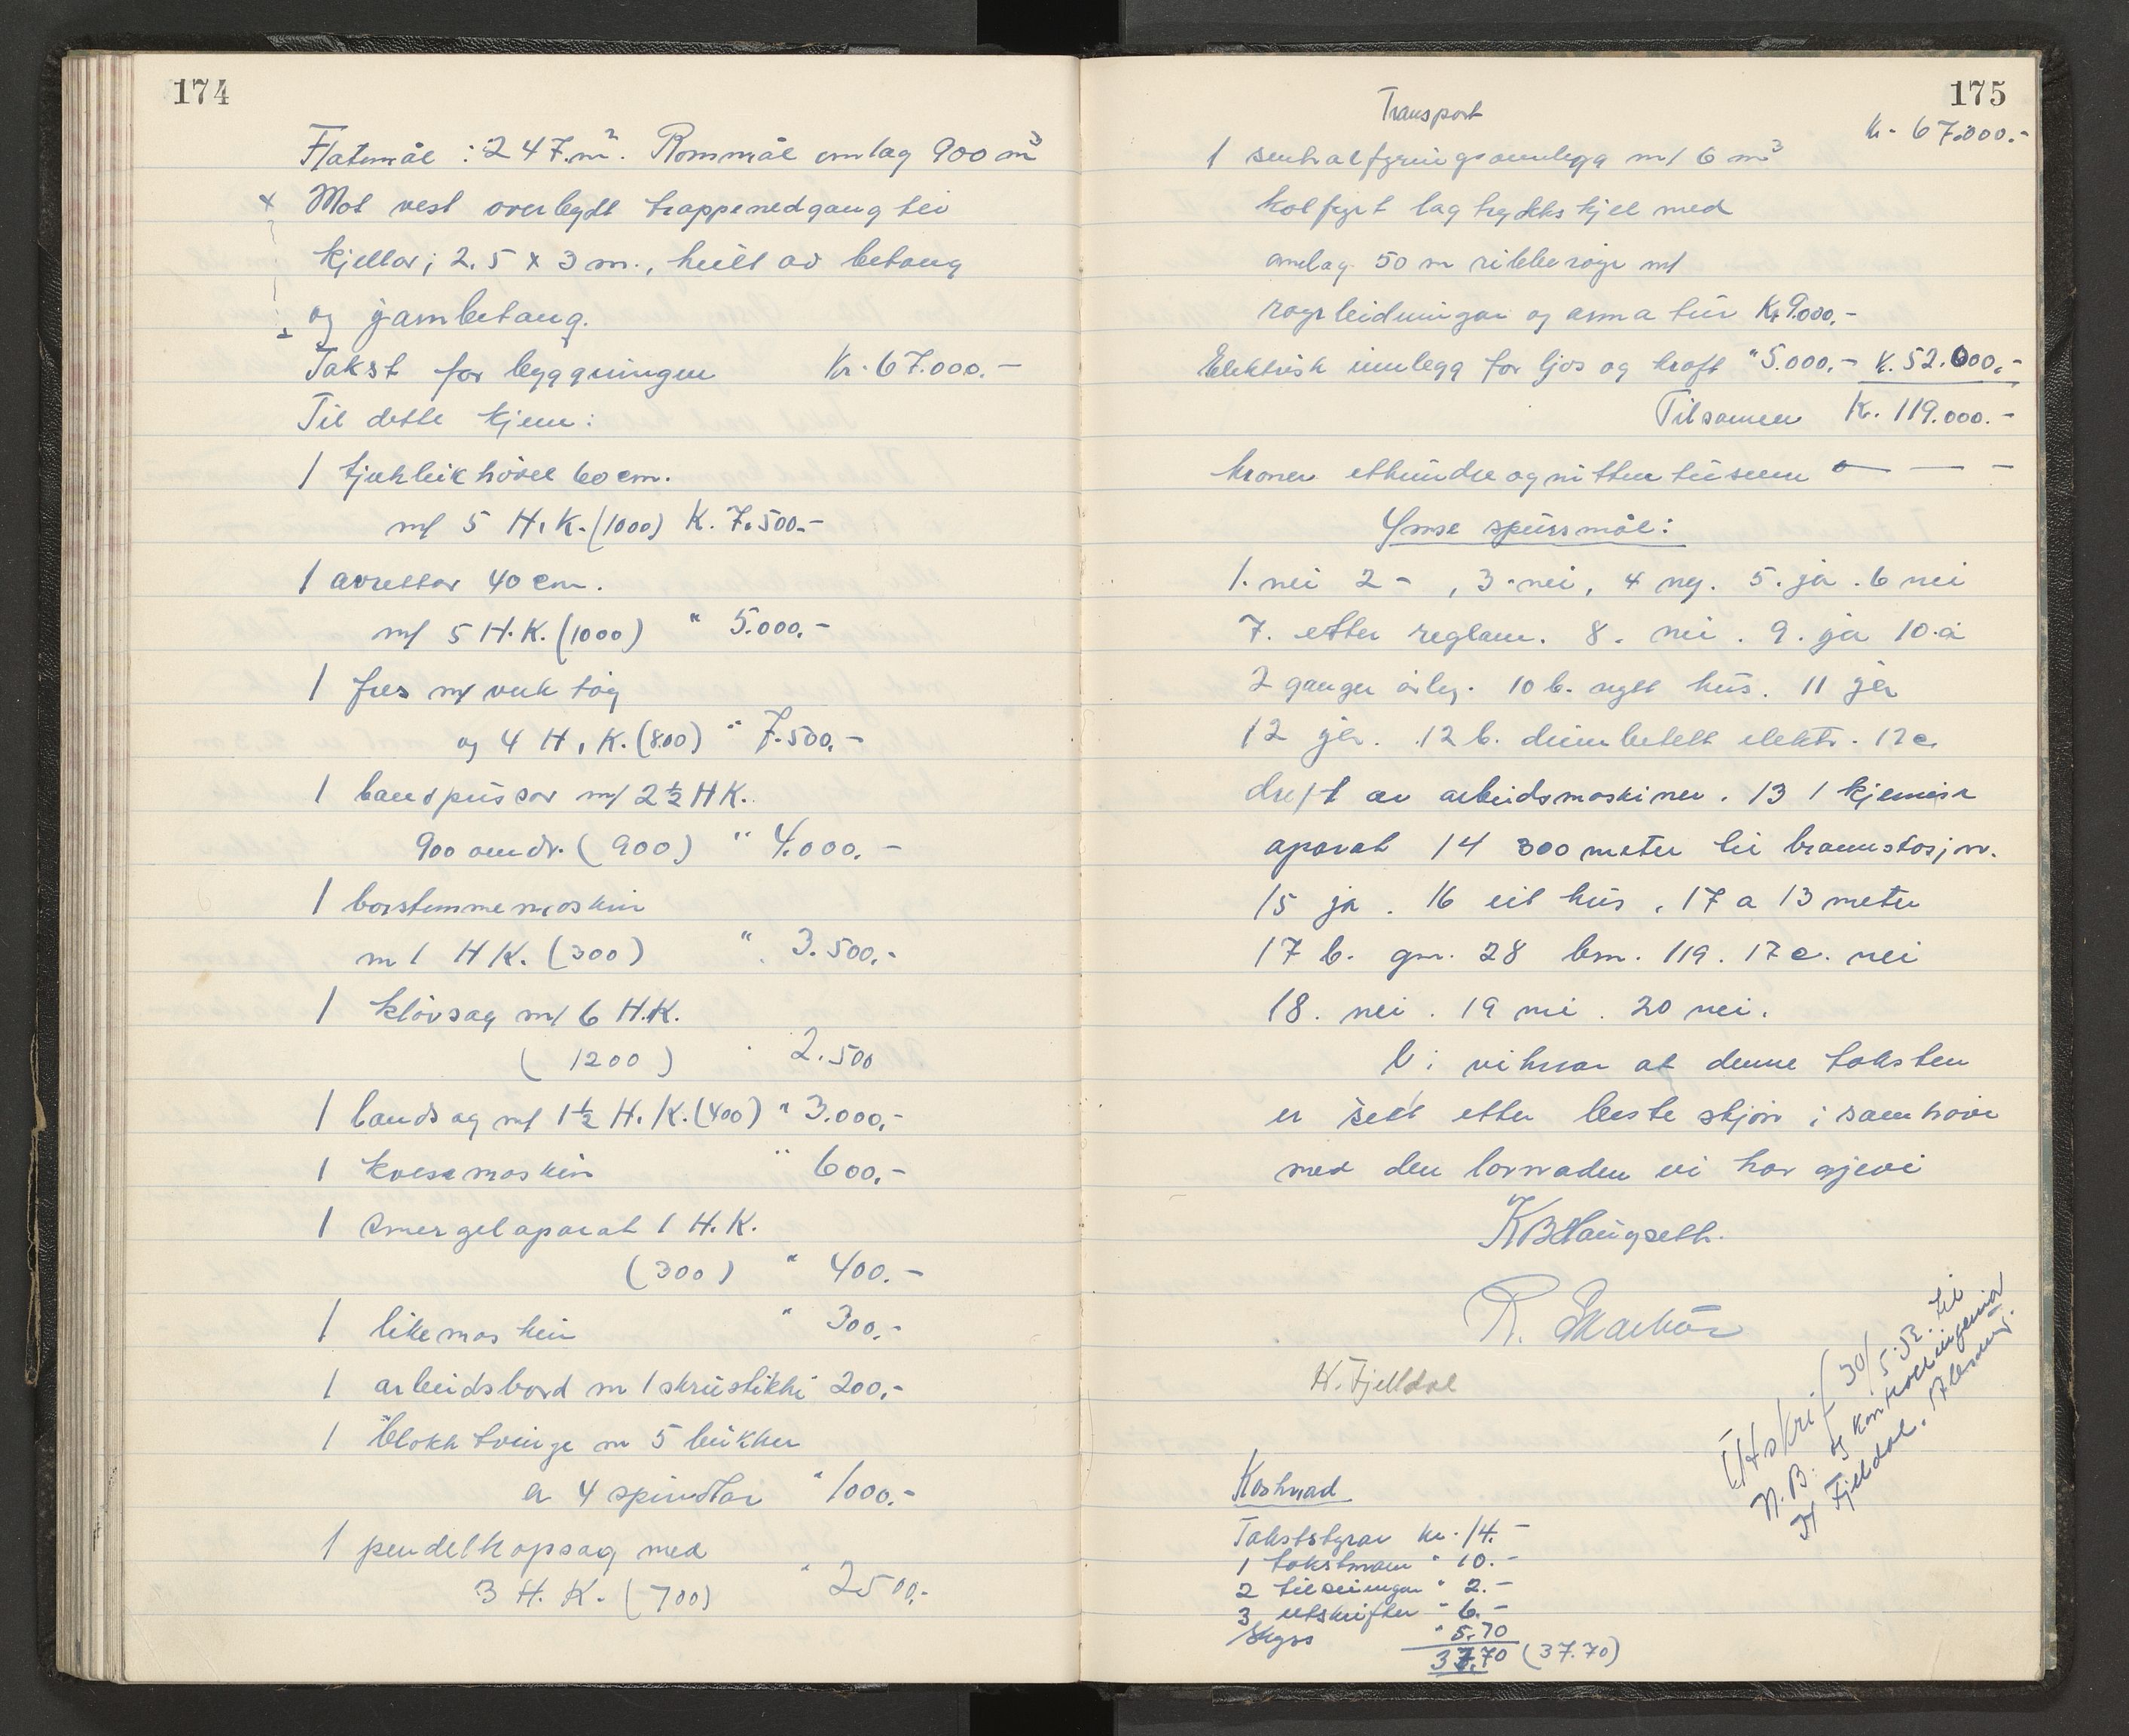 174
Flatemål : 247 m². Rommål omlag 900 m³
x Mot vest overbygdt trappenedgang til
kjellar; 2.5 x 3 m., heilt av betong
og jarnbetong.
Takst for byggningen Kr. 67.000.-
Til dette kjem:
1 tjukleikhövel 60 cm.
m/ 5 H.K. (1000) K. 7.500.-
1 avrettar 40 cm.
m/ 5 H.K. (1000) " 5.000.-
1 fres m/ verktøy
og 4 H.K. (800) " 7.500.-
1 bandpussar m/ 2½ HK.
900 omdr. (900) " 4.000.-
1 borstemmemaskin
m 1 HK. (300) " 3.500.-
1 kløvsag m/ 6 H.K.
(1200) 2.500
1 bandsag m/ 1½ H.K. (400) " 3.000,-
1 kvessmaskin " 600,-
1 Smergelaparat 1 H.K.
(300) " 400.-
1 likemaskin " 300,-
1 arbeidsbord m 1 skrustikke 200,-
1 blokktvinge m 5 bukker
a 4 spindlar " 1000.-
1 pendelkapsag med
3 H.K. (700) " 2500.-
175
Transport
Kr. 67.000.-
1 sentralfyringsannlegg m/ 6 m³
kolfyrt lagtrykkskjel med
omlag 50 m ribberøyr m/
røyrleidningar og armatur Kr 9.000.-
Elektrisk innlegg for ljos og kraft " 5.000.- K. 52.000.-
Tilsamen K. 119.000.-
kroner etthundre og nitten tusen — — —
Ymse spursmål:
1. nei 2 - , 3 - nei, 4 ny. 5. ja . 6 nei
7. etter reglem. 8. nei . 9. ja 10.a
2 ganger årleg. 10 b. nytt hus. 11 ja
12 ja. 12 b. elektr. 12 c.
drift av arbeidsmaskiner. 13 1 kjemisk
aparat 14 300 meter til brannstasjon.
15 ja . 16 eit hus . 17 a 13 meter
17 b. gnr. 28 bnr. 119. 17 c. nei
18. nei . 19 nei . 20 nei.
Vi vitnar at denne taksten
er sett etter beste skjøn i samhøve
med den lovnaden vi har gjevi
K B Haugseth.
R. Skarbø
K. Fjelldal
Utskrift 30/5.52. til
N.B. og kontrollingeniør
K Fjelldal. Ålesund.
Kostnad
Takststyrar kr. 14.-
1 takstmann " 10.-
2 tilseiingar " 2.-
3 utskrifter " 6.-
Skyss " 5.70
37.70 (37.70)